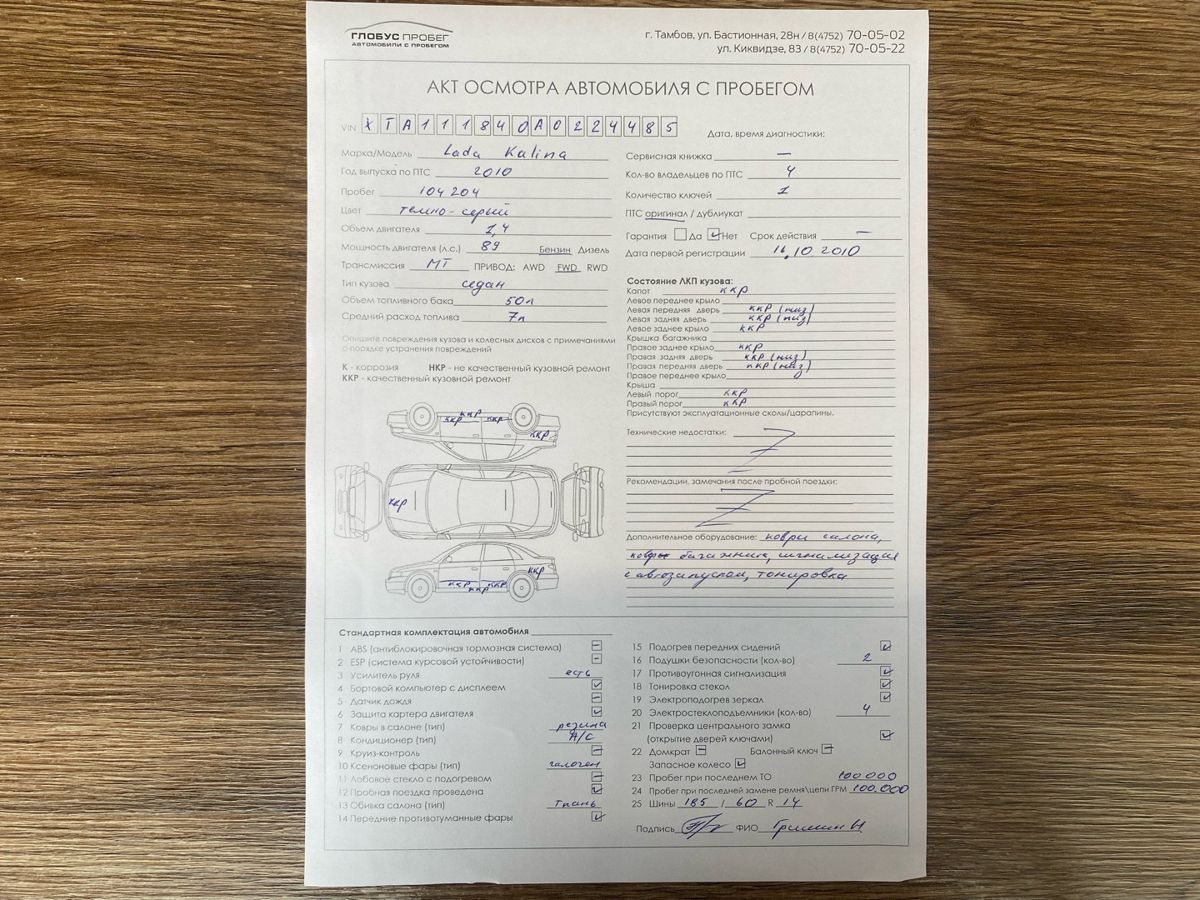 ГЛОБУС ПРОБЕГ
АВТОМОБИЛИ С ПРОБЕГОМ
г. Тамбов, ул. Бастионная, 28н / 8(4752) 70-05-02
ул. Киквидзе, 83 / 8(4752) 70-05-22
АКТ ОСМОТРА АВТОМОБИЛЯ С ПРОБЕГОМ
VIN XTA111840A0224485
Дата, время диагностики:
Марка/Модель Lada Kalina
Год выпуска по ПТС 2010
Пробег 104 204
Цвет темно-серый
Объем двигателя 1,4
Мощность двигателя (л.с.) 89 Бензин Дизель
Трансмиссия МТ ПРИВОД: AWD FWD RWD
Тип кузова седан
Объем топливного бака 50л
Средний расход топлива 7л
Опишите повреждения кузова и колесных дисков с примечаниями
о порядке устранения повреждений
К - коррозия НКР - не качественный кузовной ремонт
ККР - качественный кузовной ремонт
Сервисная книжка —
Кол-во владельцев по ПТС 4
Количество ключей 1
ПТС оригинал / дубликат
Гарантия Да Нет Срок действия —
Дата первой регистрации 16.10.2010
Состояние ЛКП кузова:
Капот ккр
Левое переднее крыло
Левая передняя дверь ккр (низ)
Левая задняя дверь ккр (низ)
Левое заднее крыло ккр
Крышка багажника
Правое заднее крыло ккр
Правая задняя дверь ккр (низ)
Правая передняя дверь ккр (низ)
Правое переднее крыло
Крыша
Левый порог ккр
Правый порог ккр
Присутствуют эксплуатационные сколы/царапины.
ккр
ккр
ккр
ккр
ккр
ккр
ккр
ккр
ккр
Технические недостатки:
Рекомендации, замечания после пробной поездки:
Дополнительное оборудование: ковры салона,
ковры багажник, сигнализация
с автозапуском, тонировка
Стандартная комплектация автомобиля
1 ABS (антиблокировочная тормозная система) –
2 ESP (система курсовой устойчивости) –
3 Усилитель руля есть
4 Бортовой компьютер с дисплеем
5 Датчик дождя –
6 Защита картера двигателя
7 Ковры в салоне (тип) резина
8 Кондиционер (тип) A/C
9 Круиз-контроль –
10 Ксеноновые фары (тип) галоген
11 Лобовое стекло с подогревом –
12 Пробная поездка проведена
13 Обивка салона (тип) ткань
14 Передние противотуманные фары
15 Подогрев передних сидений
16 Подушки безопасности (кол-во) 2
17 Противоугонная сигнализация
18 Тонировка стекол
19 Электроподогрев зеркал
20 Электростеклоподъемники (кол-во) 4
21 Проверка центрального замка
(открытие дверей ключами)
22 Домкрат – Балонный ключ –
Запасное колесо
23 Пробег при последнем ТО 100.000
24 Пробег при последней замене ремня\цепи ГРМ 100.000
25 Шины 185 / 60 R 14
Подпись ФИО